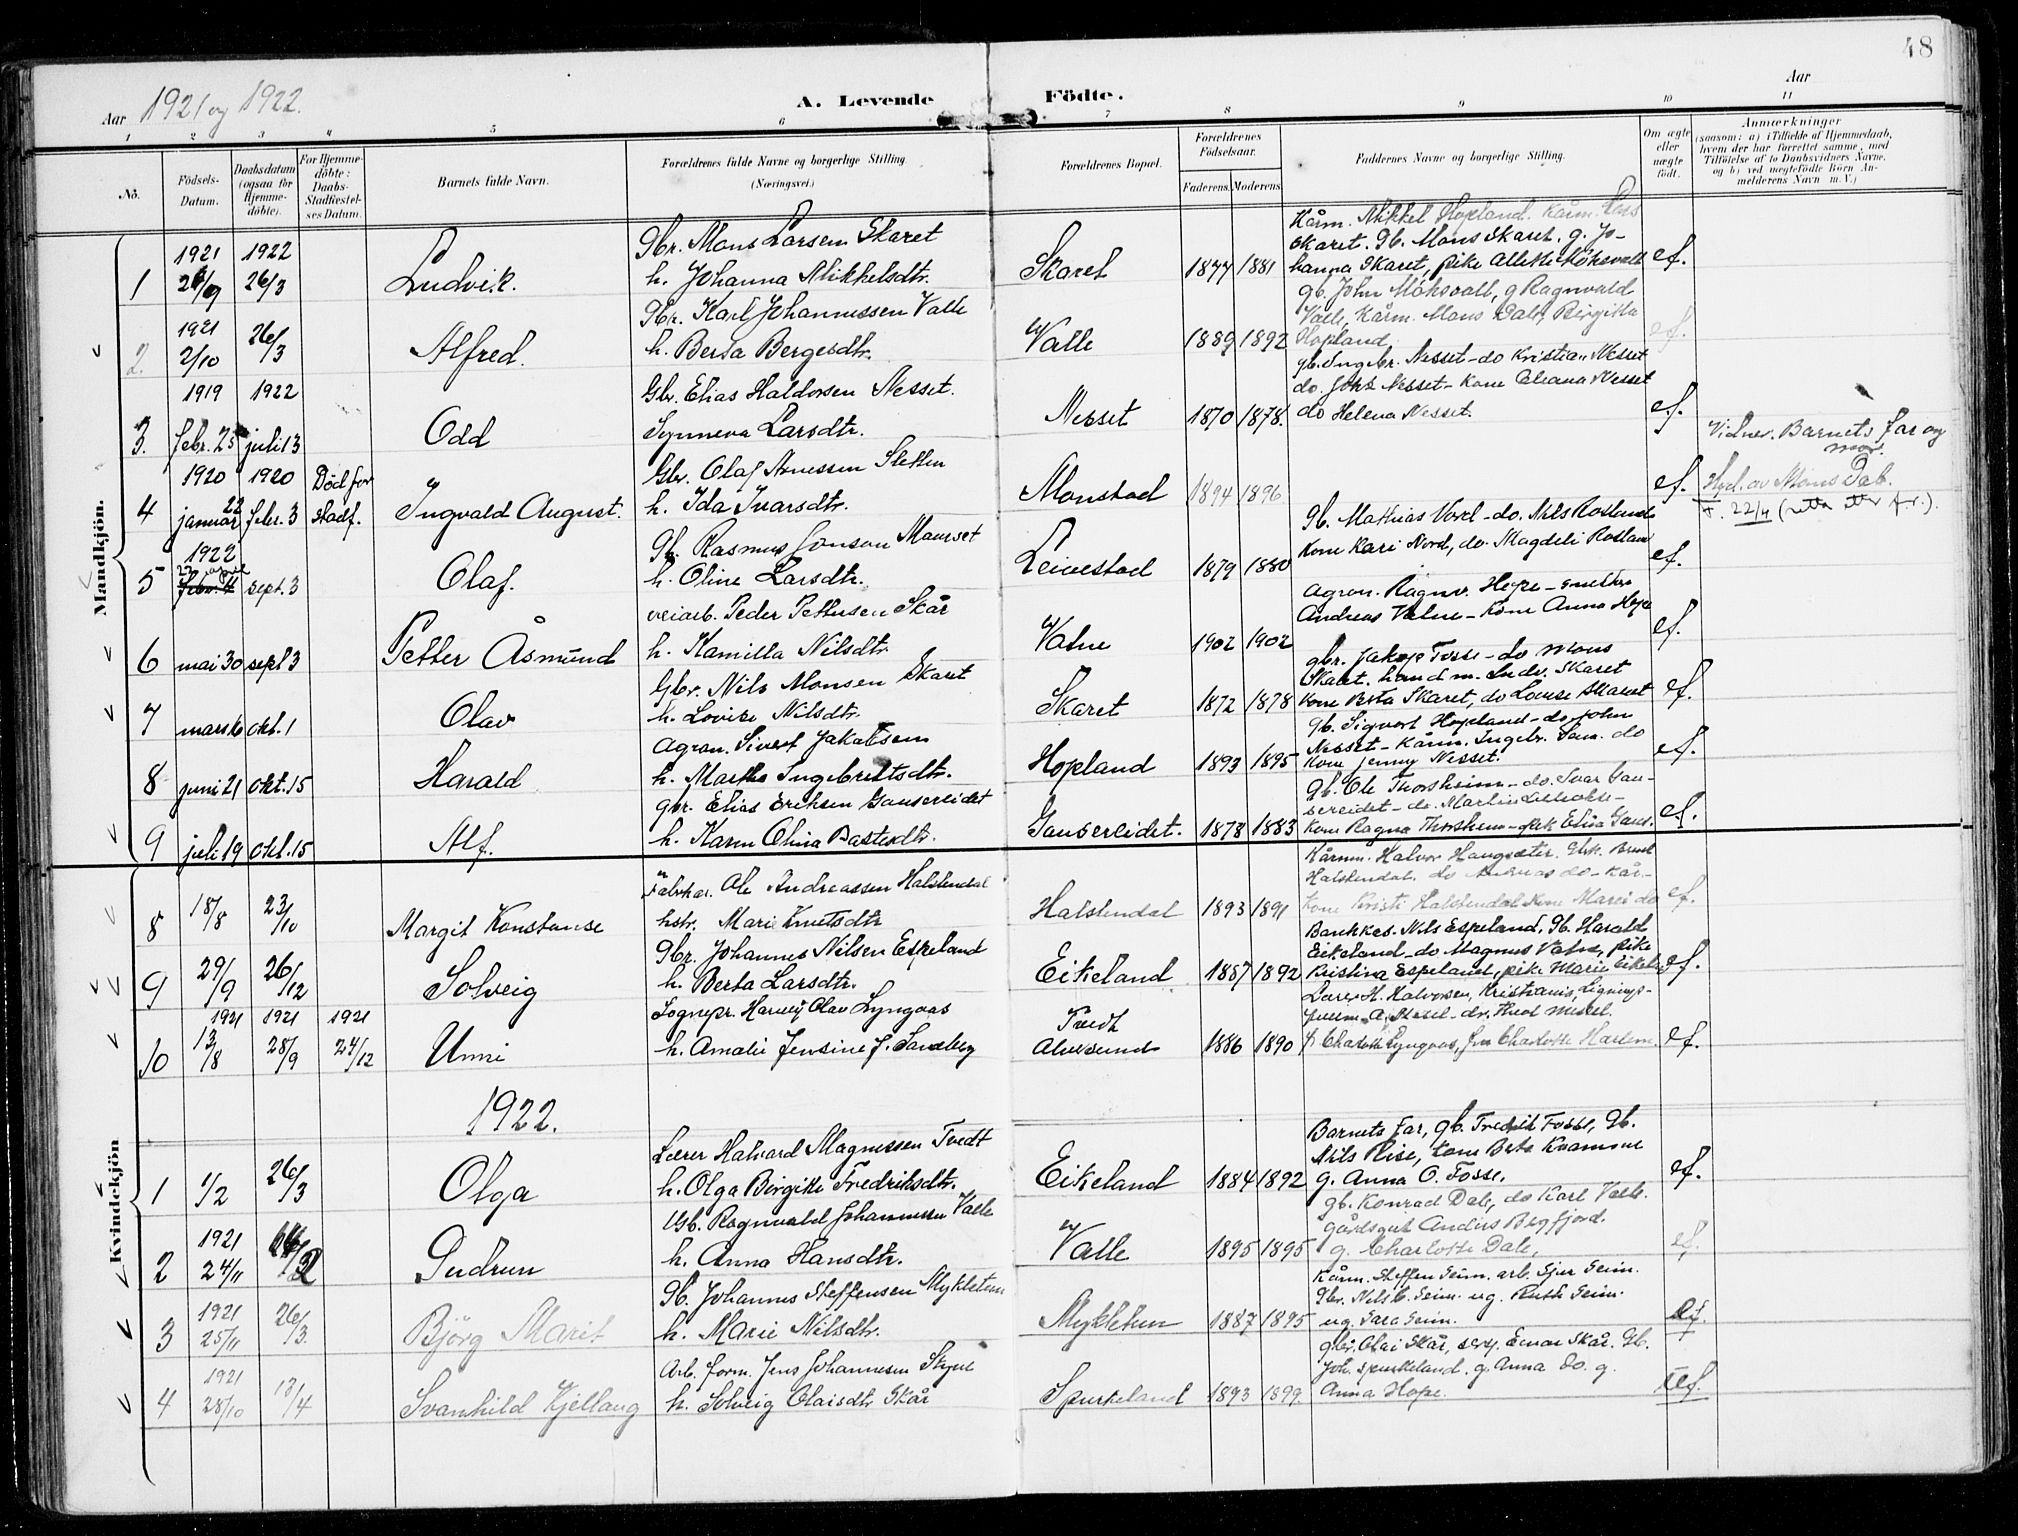 48
Aar 1921 og 1922.
A. Levende Födte.
Aar
1 2 3 4 5 6 7 8 9 10 11
No.
Födsels-Datum.
Daabsdatum (ogsaa for Hjemmedöbte).
For Hjemmedöbte: Daabs-Stadfæstelses Datum.
Barnets fulde Navn.
Forældrenes fulde Navne og borgerlige Stilling. (Næringsvei.)
Forældrenes Bopæl.
Forældrenes Födselsaar.
Faderens. Moderens.
Faddernes Navne og borgerlige Stilling.
Om ægte eller uægte födt.
Anmærkninger
(saasom: a) i Tilfælde af Hjemmedaab, hvem der har forrettet samme, med Tilföielse af to Daabsvidners Navne, og b) ved uægtefödte Börn Anmelderens Navn m. V.)
Mandkjön.
1 1921 26/9 1922 26/3 Ludvik. Gbr. Mons Larsen Skaret
h. Johanna Mikkelsdtr. Skaret 1877 1881 ef.
Kårm. Mikkel Hopland. Kårm. Lars
Skaret. Gb. Mons Skaret, g. Jo-
hanna Skaret, pike Allette Möksvoll
2. 1921 2/10 26/3 Alfred. Gbr. Karl Johannessen Valle
h. Berta Bergesdtr. Valle 1889 1892 ef.
gb. John Möksvoll, g Ragnvald
Valle, Kårm. Mons Dale, Birgitta
Hopland.
3. 1919 febr. 25 1922 juli 13 Odd Gbr. Elias Haldorsen Nesset.
Synneva Larsdtr. Nesset 1870 1878. ef.
gb. Ingebr. Nesset - do Kristian Nesset
do Johs Nesset - Kone Oleana Nesset
do Helena Nesset.
4 1920 januar 22 1920 febr. 3 Död for stadf. Ingvald August. Gbr. Olaf Arnessen Sletten
h. Ida Ivarsdtr. Monstad 1894 1896 ef.
Vidner. Barnets far og mor.
Hjd. av Mons Dale.
+. 22/4
5 1922 27 april febr. 4 sept. 3 Olaf. Gb. Rasmus Jonson Maurset
h. Oline Larsdtr. Leivestad 1879 1880 ef.
Gb. Mathias Nord - do. Nils Rosland
Kone Kari Nord, do. Magdeli Rosland
6 mai 30 sept 3 Petter Åsmund veiarb. Peder Pettersen Skår
h. Kamilla Nilsdtr. Vatne 1902 1902 ef.
agron. Ragnv. Hope - snekker
Andreas Vatne - Kone Anna Hope
7 mars 6 okt. 1 Olav Gbr. Nils Monsen Skaret
h. Lovise Nilsdtr. Skaret 1872 1878 ef.
gbr. Jakop Fosse - do Mons
Skaret. handm. Ludv. Skaret
Kone Berta Skaret, do Lovise Skaret
8 juni 21 okt. 15 Harald Agron. Sivert Jakobsen
h. Marta Ingebrittsdtr. Hopland 1893 1895 ef.
gb. Sigvort Hopland - do John
Nesset - Kårm. Ingebr. Sam. do
Kone Jenny Nesset.
9 juli 19 okt. 15 Alf. gbr. Elias Eriksen Gausereidet
h. Karen Olina Bastesdtr. Gausereidet. 1878 1883 ef.
gb. Ole Thorsheim - do. Ivar Gau-
sereidet - do. Martin
Kone Ragna Thorsheim - pike Elisa Gaus.
Kvindekjön
8 18/8 23/10 Margit Konstanse Ole Andreassen Halstendal
hstr. Marie Knutsdtr Halstendal 1893 1891 ef.
Kårm. Halvor Haugsæter. Gbk. Brent
Halstendal, do Andreas do - Kår-
kone Kristi Halstendal Kone Marei do
9 29/9 26/12 Solveig Gbr. Johannes Nilsen Espeland
h. Berta Larsdtr. Eikeland 1887 1892 ef.
Bankkas. Nils Espeland, Gb. Harald
Eikeland - do Magnus Vatne, pike
Kristina Espeland, pike Marie Eikeland
10 1921 13/8 1921 28/9 1921 24/12 Unni Sognepr. Harvey Olav Lyngvas
h. Amalie Jensine J. Sandberg Tvedt Alversund 1886 1890 ef.
Lærer H. Halvorsen, Kristiania, Lignings-
A. Mesel - dr. Knut Mesel.
fr Charlotte Lyngvas, frk Charlotte Harlem.
1922.
1 1/2 26/3 Olga Lærer Halvard Magnussen Tvedt
h. Olga Birgitte Fredriksdtr. Eikeland 1884 1892 ef.
Barnets far, gb. Fredrik Fosse, Gb.
Nils Rise, Kone Berta Kvamme
g. Anna O. Fosse.
2 1921 24/11 Gudrun Gb. Ragnvald Johannessen Valle
h. Anna Hansdtr. Valle 1895 1895 ef.
gb. Konrad Dale, do Karl Valle.
Gårdsgut Anders Begfjord.
g. Charlotte Dale,
3 1921 25/11 26/3. Björg Marit Gb. Johannes Steffensen Mykletun
h. Marie Nilsdtr. Mykletun 1887 1895 ef.
Kårm. Steffen Seim. arb. Sjur Seim.
Gbr. Nils B. Seim. ug. Ruth Seim.
ug. Sara Seim.
4 1921 28/10 13/4 Svanhild Kjellaug Arb. form. Jens Johannesen Skyve
h. Solveig Olaisdtr Skår Spurkeland 1893 1899. uef.
gbr. Olai Skår, serg. Einar Skår. Gb.
Joh. Spurkeland. g. Anna do. g.
Anna Hope.